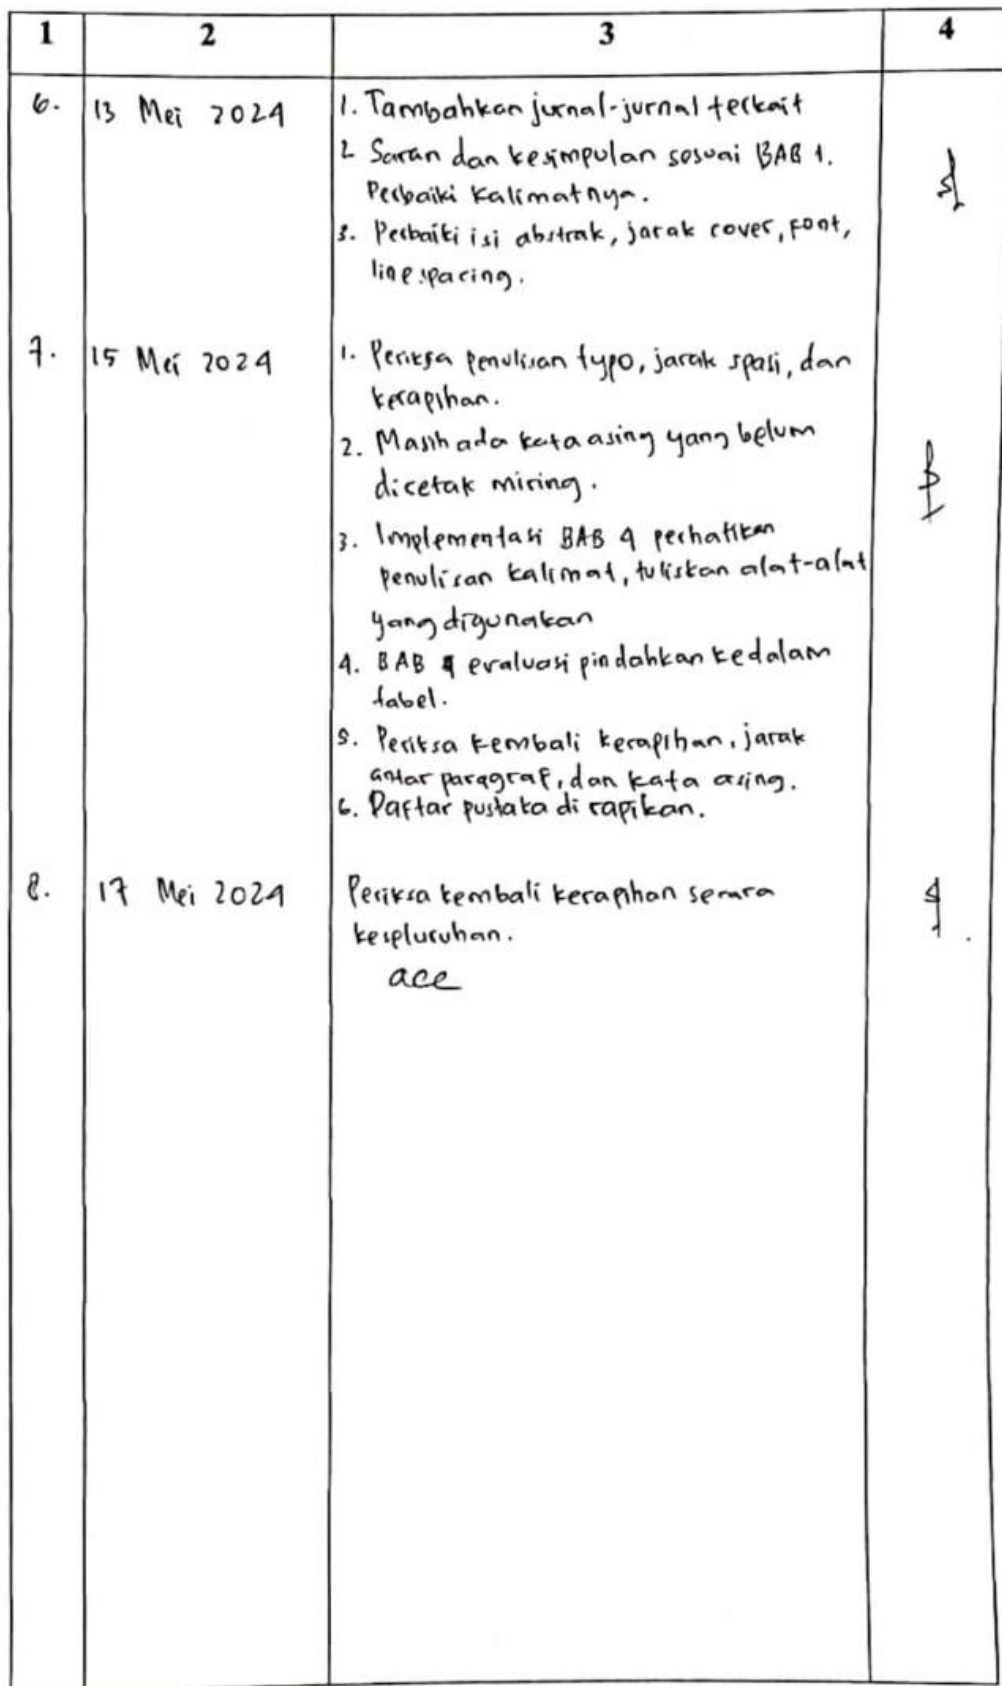 1 2 3 4
6. 13 Mei 2024 1. Tambahkan jurnal-jurnal terkait
2 Saran dan kesimpulan sesuai BAB 1.
Perbaiki kalimatnya.
3. Perbaiki isi abstrak, jarak cover, font,
line spacing.
7. 15 Mei 2024 1. Periksa penulisan typo, jarak spasi, dan
kerapihan.
2. Masih ada kata asing yang belum
dicetak miring.
3. Implementasi BAB 4 perhatikan
penulisan kalimat, tuliskan alat-alat
yang digunakan
4. BAB 4 evaluasi pindahkan kedalam
tabel.
5. Periksa kembali kerapihan, jarak
antar paragraf, dan kata asing.
6. Daftar pustaka di rapikan.
8. 17 Mei 2024 Periksa kembali kerapihan secara
keseluruhan.
acc